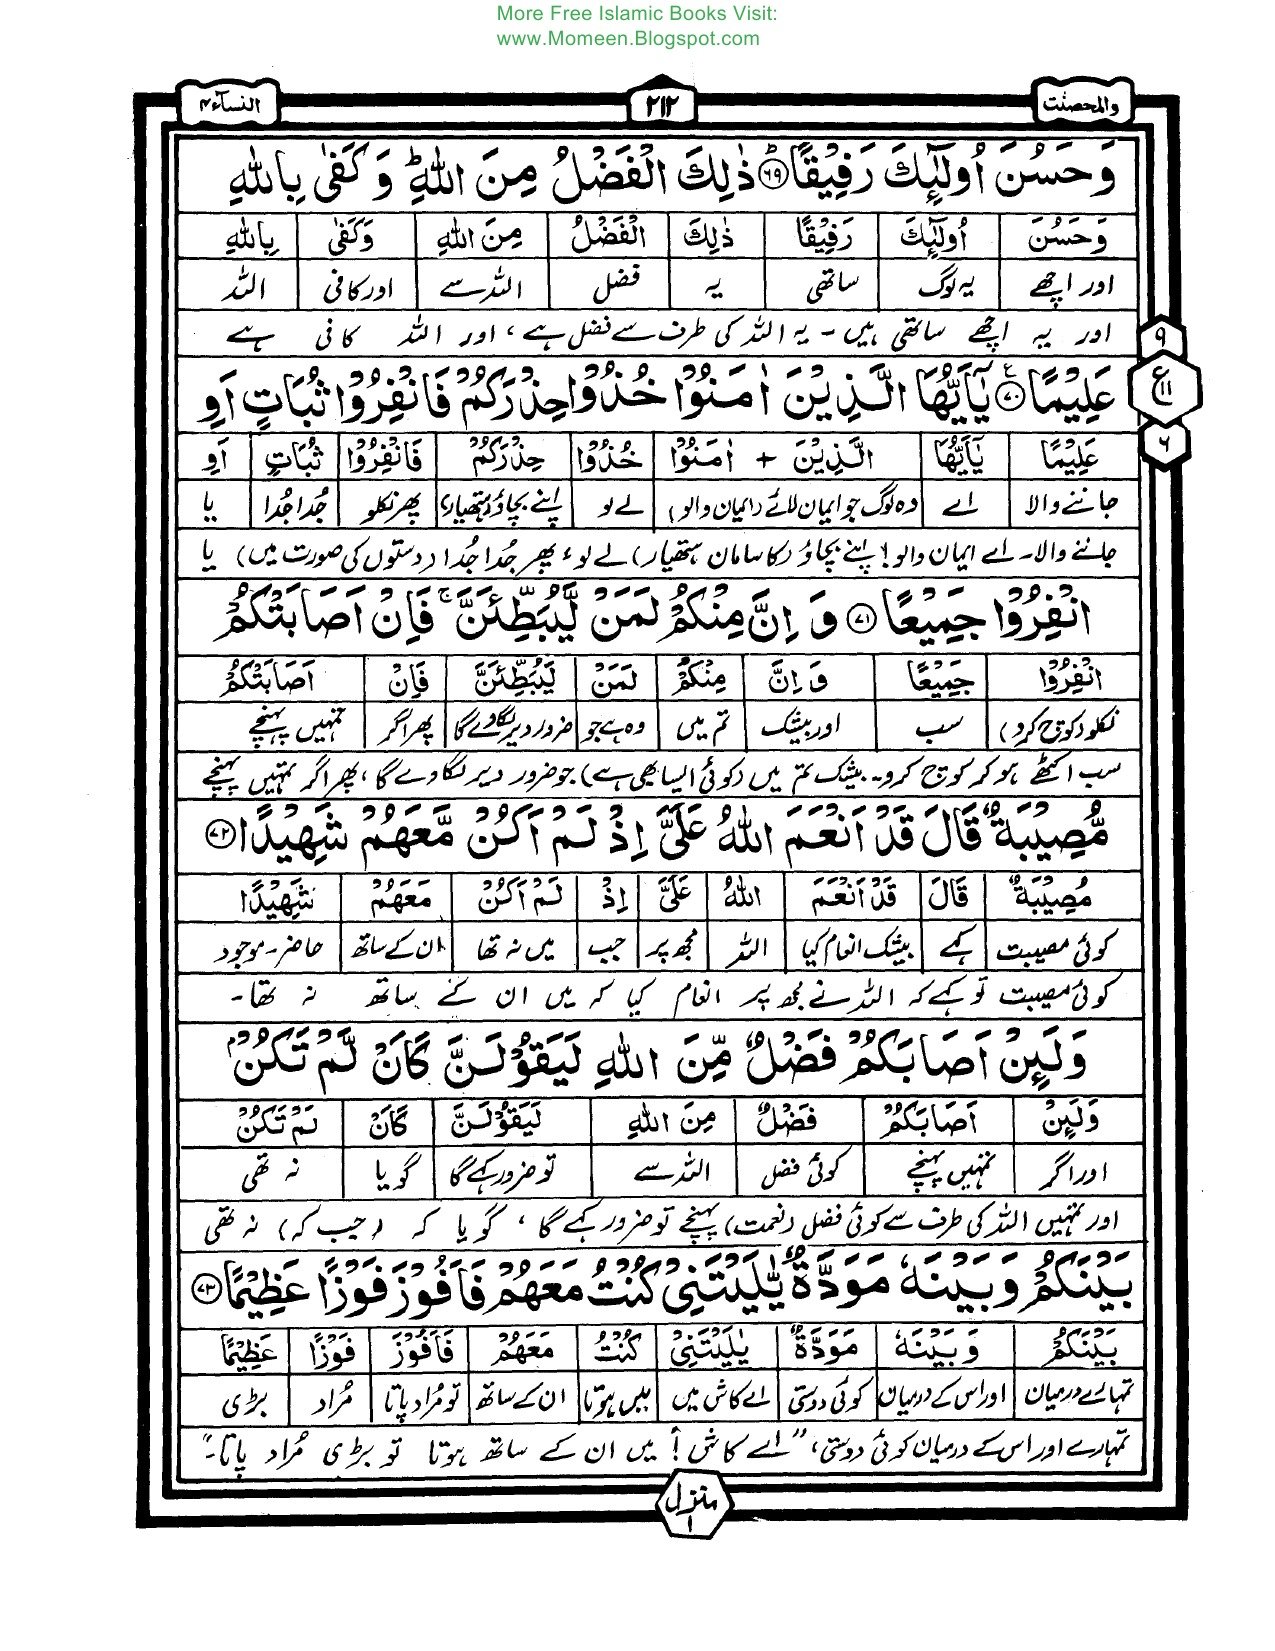 More Free Islamic Books Visit:
www.Momeen.Blogspot.com
والمحصنٰت ۲۱۲ النسآء ۴
وَحَسُنَ اُولٰٓئِكَ رَفِيْقًا ۶۹ ذٰلِكَ الْفَضْلُ مِنَ اللّٰهِ ؕ وَ كَفٰى بِاللّٰهِ
وَحَسُنَ اُولٰٓئِكَ رَفِيْقًا ذٰلِكَ الْفَضْلُ مِنَ اللّٰهِ وَكَفٰى بِاللّٰهِ
اور اچھے یہ لوگ ساتھی یہ فضل اللہ سے اور کافی اللہ
اور یہ اچھے ساتھی ہیں - یہ اللہ کی طرف سے فضل ہے ، اور اللہ کافی ہے
۹
ع ۱۱
۶
عَلِيْمًا ۷۰ يٰۤاَيُّهَا الَّذِيْنَ اٰمَنُوْا خُذُوْا حِذْرَكُمْ فَانْفِرُوْا ثُبَاتٍ اَوِ
عَلِيْمًا يٰۤاَيُّهَا الَّذِيْنَ + اٰمَنُوْا خُذُوْا حِذْرَكُمْ فَانْفِرُوْا ثُبَاتٍ اَوِ
جاننے والا اے وہ لوگ جو ایمان لائے (ایمان والو) لے لو اپنے بچاؤ (ہتھیار) پھر نکلو جُدا جُدا یا
جاننے والا - اے ایمان والو! اپنے بچاؤ (کا سامان ہتھیار) لے لو، پھر جُدا جُدا (دستوں کی صورت میں) یا
انْفِرُوْا جَمِيْعًا ۷۱ وَ اِنَّ مِنْكُمْ لَمَنْ لَّيُبَطِّئَنَّ ۚ فَاِنْ اَصَابَتْكُمْ
انْفِرُوْا جَمِيْعًا وَ اِنَّ مِنْكُمْ لَمَنْ لَيُبَطِّئَنَّ فَاِنْ اَصَابَتْكُمْ
نکلو (کوچ کرو) سب اور بیشک تم میں وہ ہے جو ضرور دیر لگا دے گا پھر اگر تمہیں پہنچے
سب اکٹھے ہو کر کوچ کرو - بیشک تم میں (کوئی ایسا بھی ہے) جو ضرور دیر لگا دے گا ، پھر اگر تمہیں پہنچے
مُّصِيْبَةٌ قَالَ قَدْ اَنْعَمَ اللّٰهُ عَلَىَّ اِذْ لَمْ اَكُنْ مَّعَهُمْ شَهِيْدًا ۷۲
مُصِيْبَةٌ قَالَ قَدْ اَنْعَمَ اللّٰهُ عَلَىَّ اِذْ لَمْ اَكُنْ مَعَهُمْ شَهِيْدًا
کوئی مصیبت کہے بیشک انعام کیا اللہ مجھ پر جب میں نہ تھا ان کے ساتھ حاضر - موجود
کوئی مصیبت تو کہے کہ اللہ نے مجھ پر انعام کیا کہ میں ان کے ساتھ نہ تھا -
وَلَئِنْ اَصَابَكُمْ فَضْلٌ مِّنَ اللّٰهِ لَيَقُوْلَنَّ كَاَنْ لَّمْ تَكُنْۢ
وَلَئِنْ اَصَابَكُمْ فَضْلٌ مِنَ اللّٰهِ لَيَقُوْلَنَّ كَاَنْ لَمْ تَكُنْ
اور اگر تمہیں پہنچے کوئی فضل اللہ سے تو ضرور کہے گا گویا نہ تھی
اور تمہیں اللہ کی طرف سے کوئی فضل (نعمت) پہنچے تو ضرور کہے گا ، گویا کہ (جب کہ) نہ تھی
بَيْنَكُمْ وَبَيْنَهٗ مَوَدَّةٌ يّٰلَيْتَنِىْ كُنْتُ مَعَهُمْ فَاَفُوْزَ فَوْزًا عَظِيْمًا ۷۳
بَيْنَكُمْ وَ بَيْنَهٗ مَوَدَّةٌ يٰلَيْتَنِىْ كُنْتُ مَعَهُمْ فَاَفُوْزَ فَوْزًا عَظِيْمًا
تمہارے درمیان اور اس کے درمیان کوئی دوستی اے کاش میں میں ہوتا ان کے ساتھ تو مُراد پاتا مُراد بڑی
تمہارے اور اس کے درمیان کوئی دوستی، "اے کاش! میں ان کے ساتھ ہوتا تو بڑی مُراد پاتا -"
منزل ۱